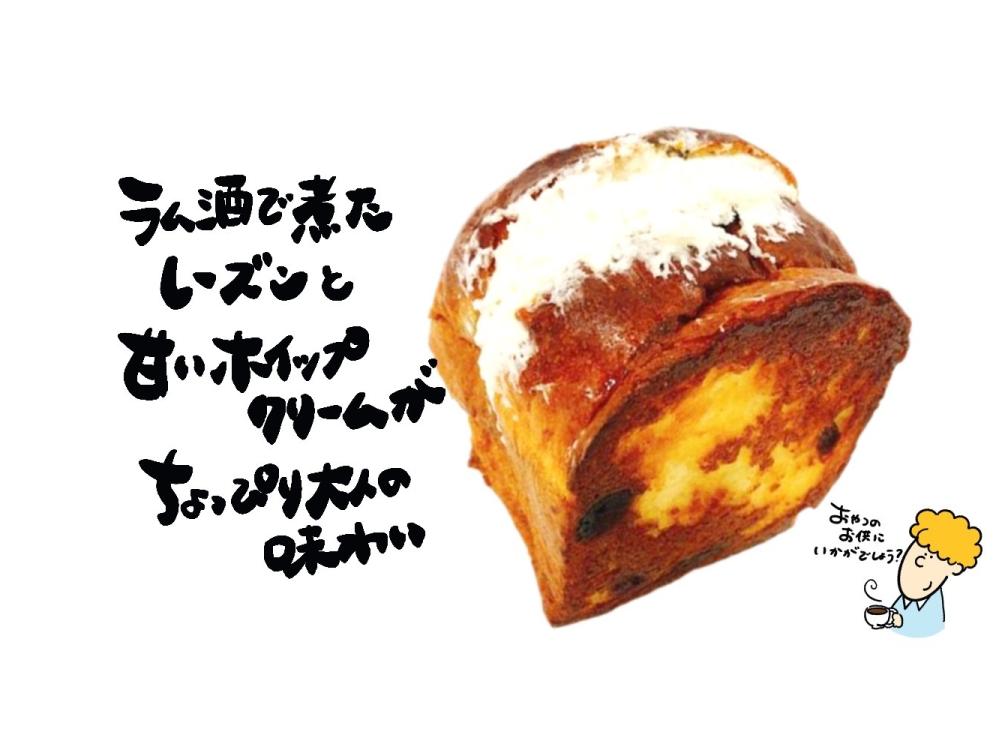 ラム酒で煮た
レーズンと
甘いホイップ
クリームが
ちょっぴり大人の
味わい
おやつの
お供に
いかがでしょう？